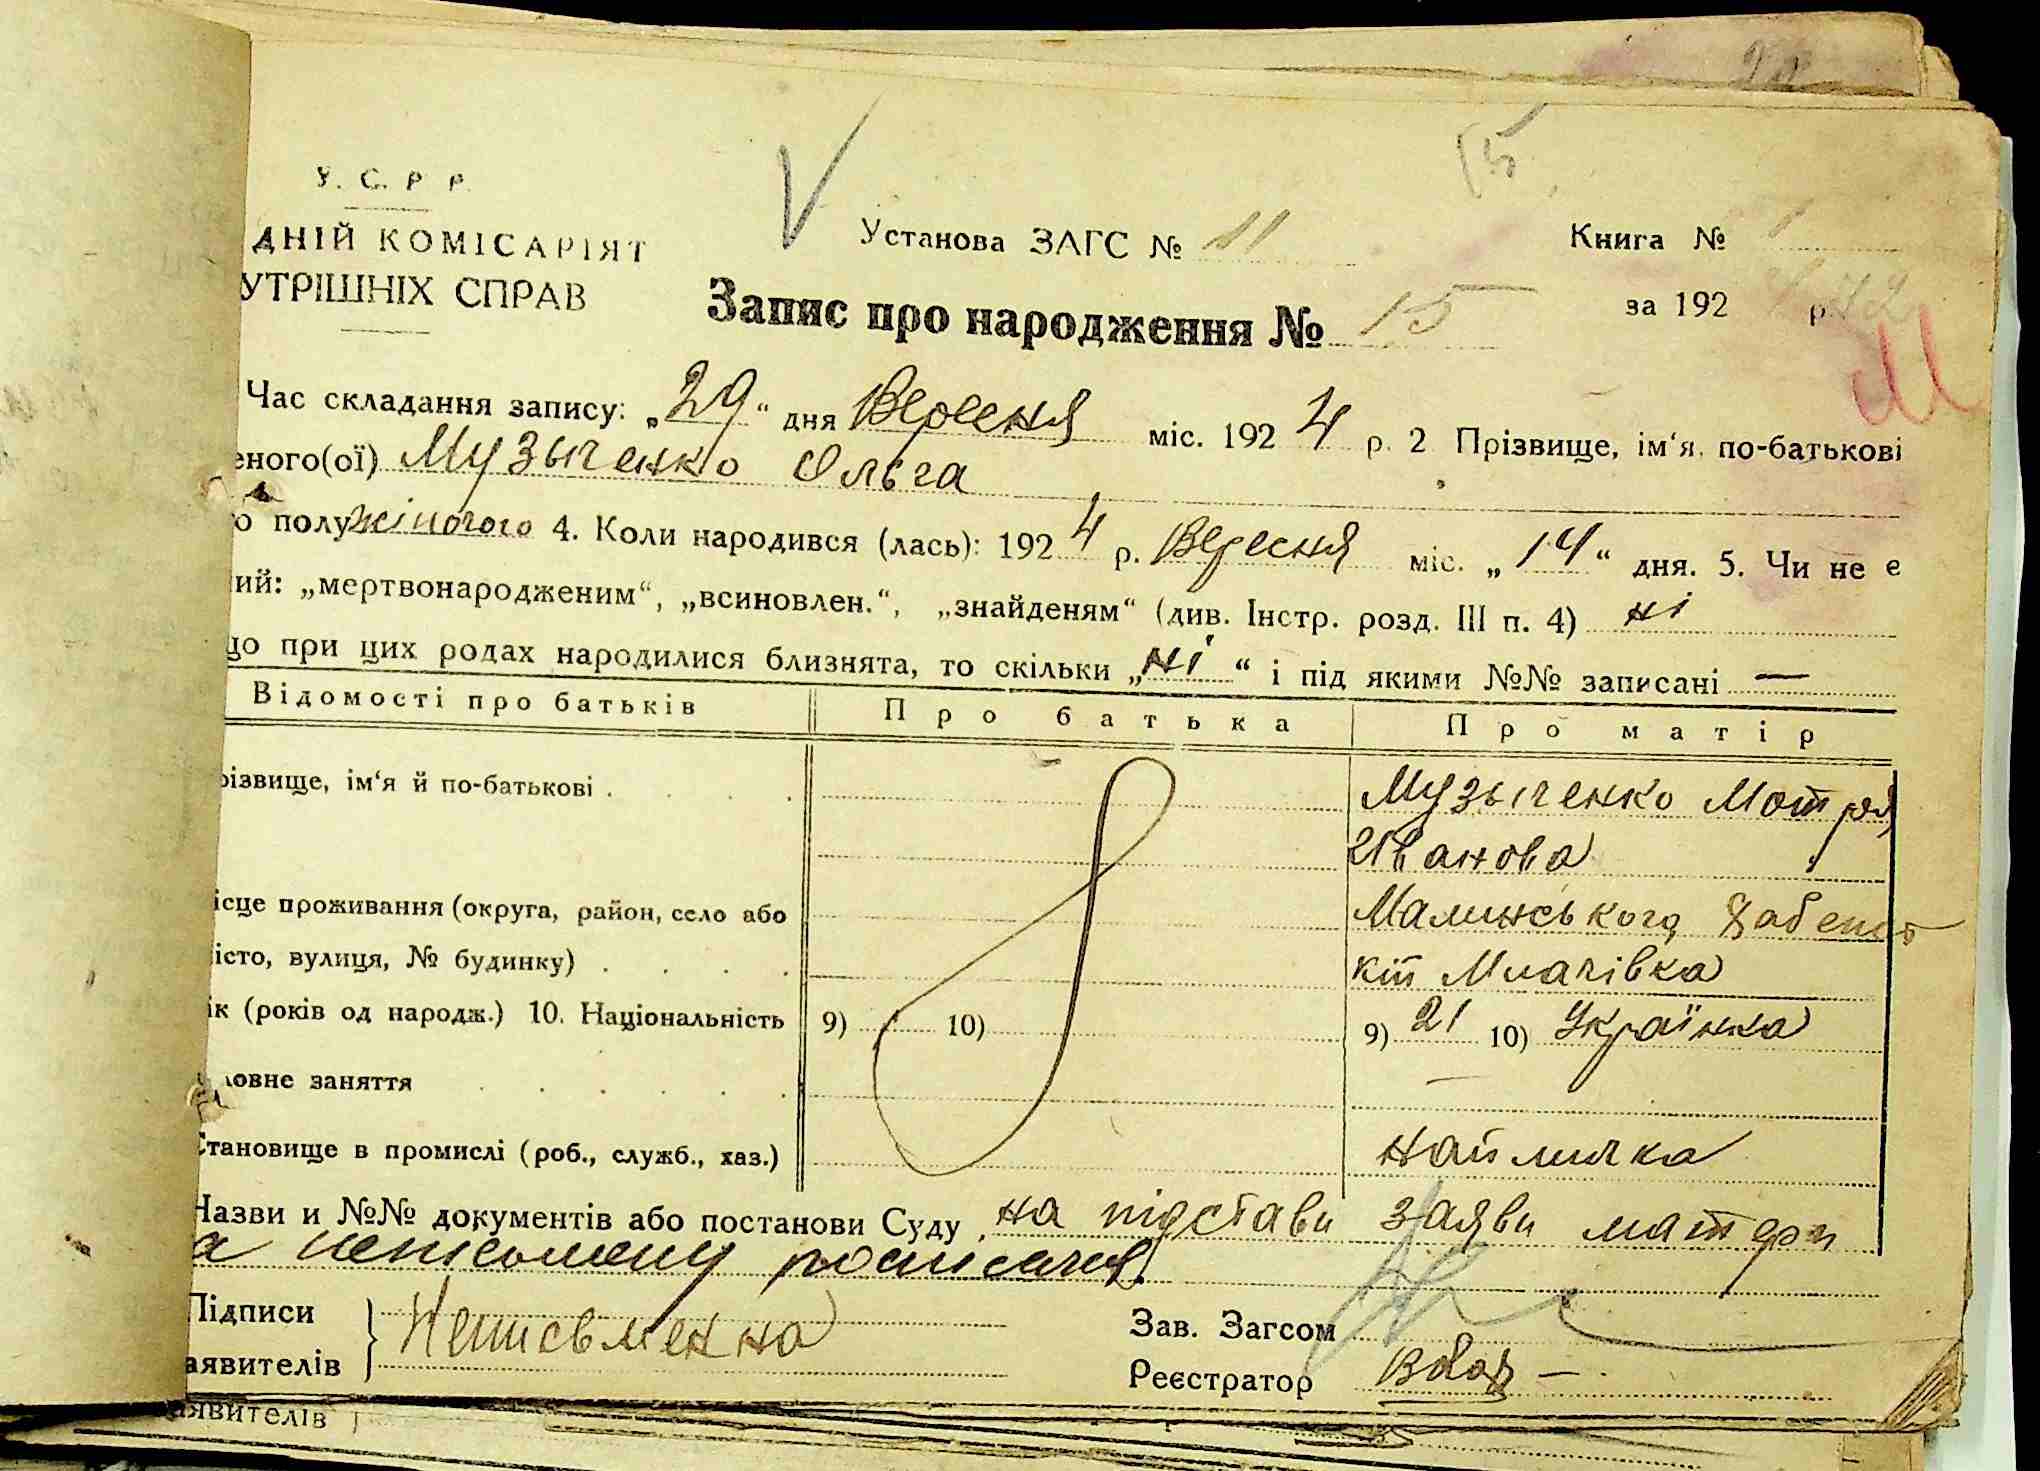 15
У. С. Р. Р.
Установа ЗАГС № 11
Книга № 1
ДНІЙ КОМІСАРІЯТ
УТРІШНІХ СПРАВ
Запис про народження № 15
за 192 р.
М
Час складання запису: „29“ дня Вересня міс. 1924 р. 2 Прізвище, ім‘я, по-батькові
еного(ої) Музыченко Ольга
о полу жіночого 4. Коли народився (лась): 1924 р. Вересня міс. „14“ дня. 5. Чи не є
ий: „мертвонародженим“, „всиновлен.“, „знайденям“ (див. Інстр. розд. III п. 4) ні
що при цих родах народилися близнята, то скільки „ні“ і під якими №№ записані —
Відомості про батьків Про батька Про матір
різвище, ім‘я й по-батькові . Музыченко Мотря
Иванова
ісце проживання (округа, район, село або Малинського
істо, вулиця, № будинку) . Млачівка
ік (років од народж.) 10. Національність 9) 10) 9) 21 10) Українка
ловне заняття —
Становище в промислі (роб., служб., хаз.) наймичка
Назви и №№ документів або постанови Суду на підстави заяви матери
а
Підписи Неписьменна
аявителів
Зав. Загсом
Реєстратор
аявителів